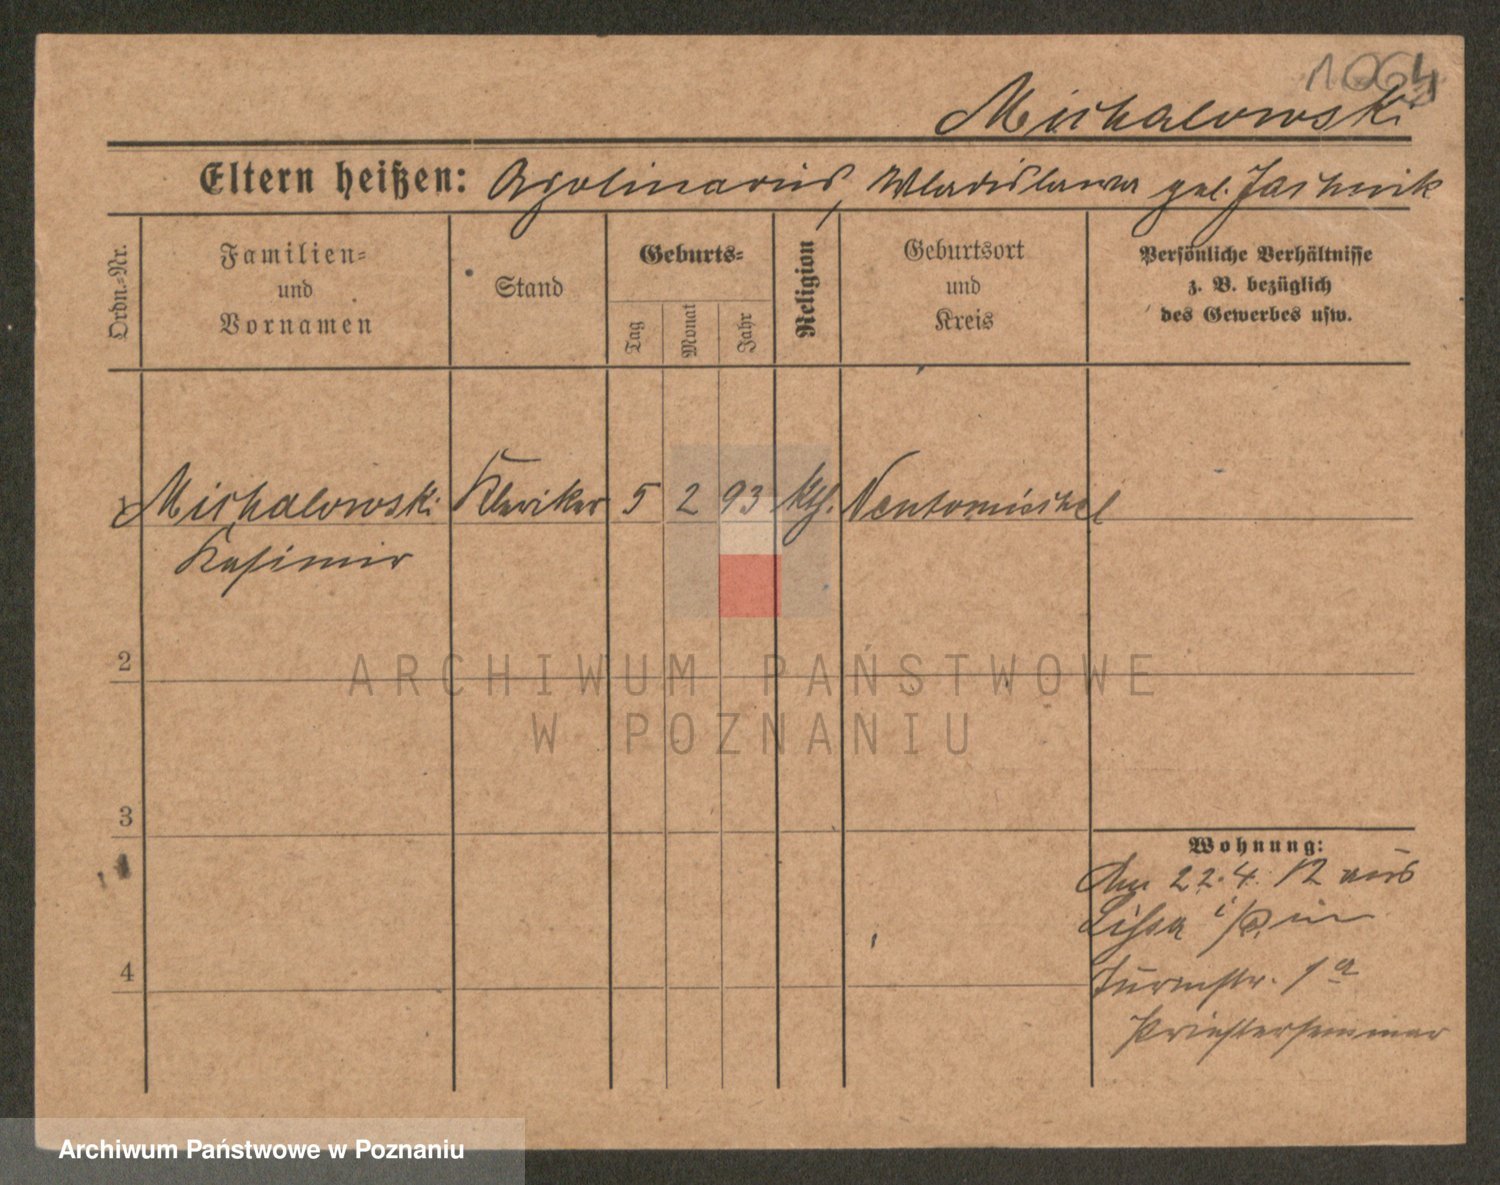 1064
Michalowski
Eltern heißen: Apolinarius, Wladislawa geb. Jachnik
Ordn.-Nr.
Familien-
und
Vornamen
Stand
Geburts-
Tag
Monat
Jahr
Religion
Geburtsort
und
Kreis
Persönliche Verhältnisse
z. B. bezüglich
des Gewerbes usw.
1 Michalowski Kleriker 5 2 93 kth. Neutomischel
Kasimir
2
3
4
Wohnung:
Am 22.4.12 aus
Lissa i/P. in
Turmstr. 1a
Priesterseminar
ARCHIWUM PAŃSTWOWE
W POZNANIU
Archiwum Państwowe w Poznaniu